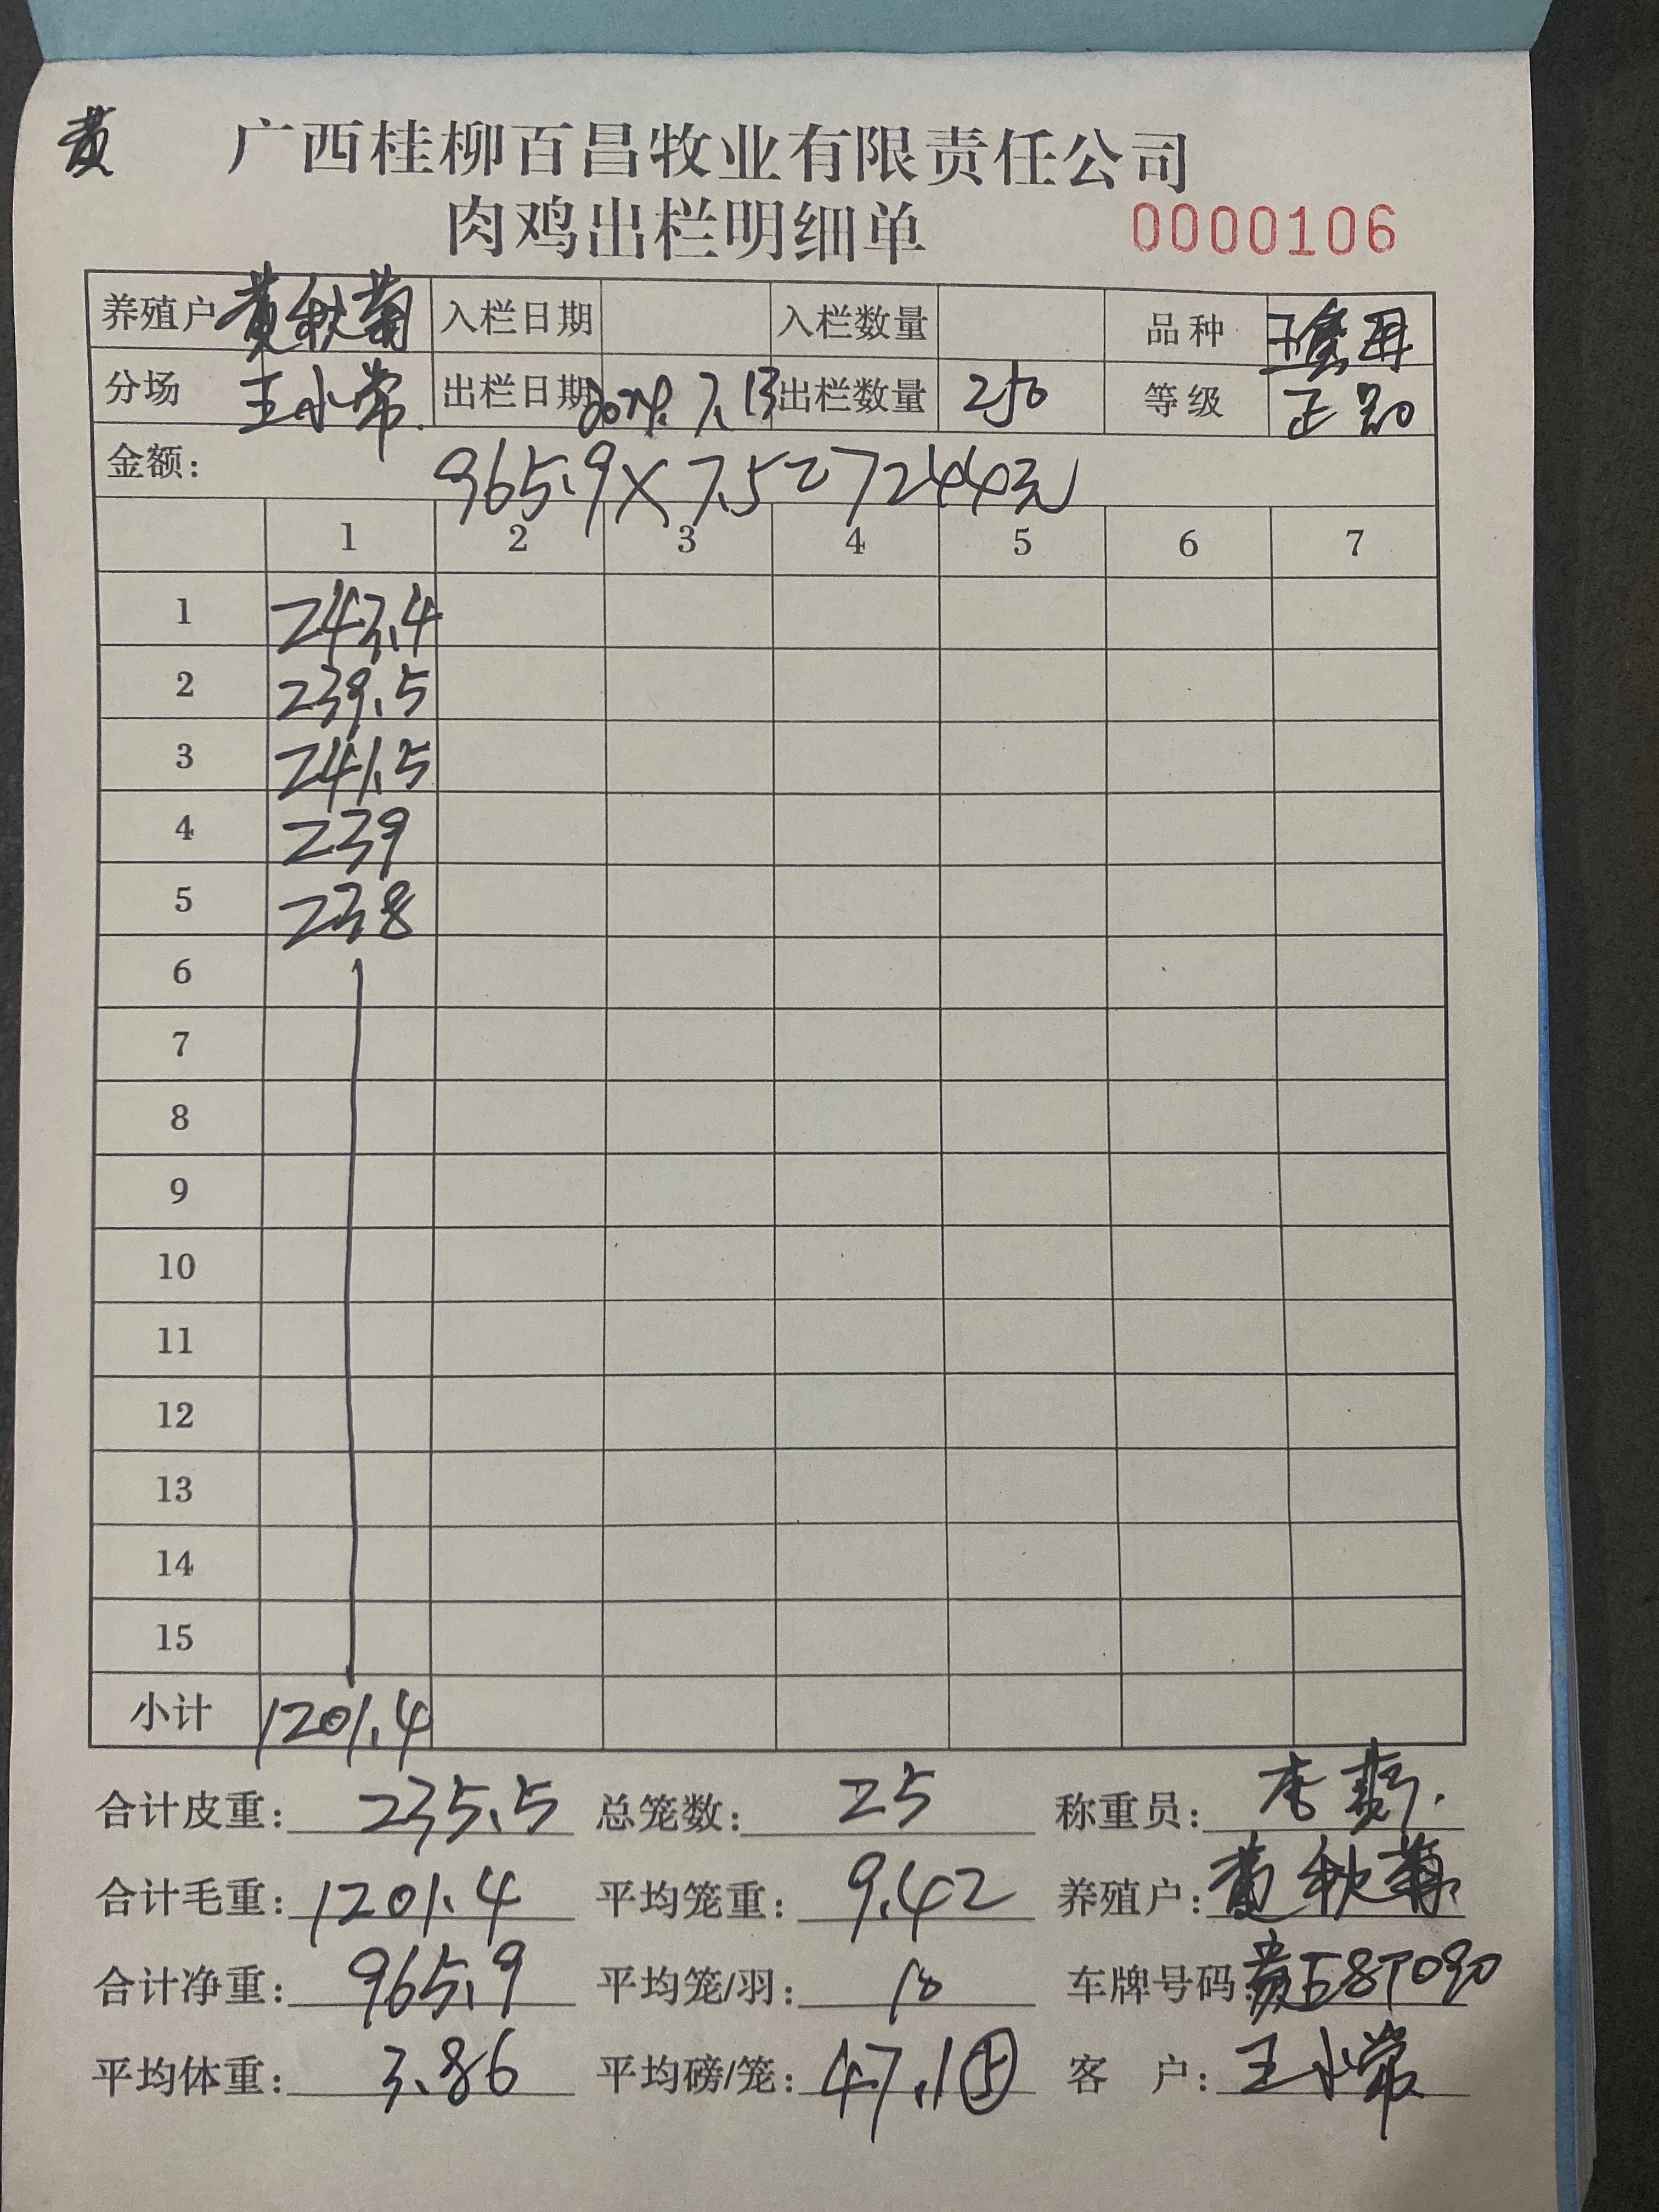 黄
广西桂柳百昌牧业有限责任公司
肉鸡出栏明细单 0000106
养殖户 黄秋菊 入栏日期 入栏数量 品种
分场 王小常. 出栏日期 2024.7.13 出栏数量 250 等级 正品
金额: 965.9×7.5=7244元
1 2 3 4 5 6 7
1 243.4
2 239.5
3 241.5
4 239
5 238
6
7
8
9
10
11
12
13
14
15
小计 1201.4
合计皮重: 235.5 总笼数: 25 称重员: 李
合计毛重: 1201.4 平均笼重: 9.42 养殖户: 黄秋菊
合计净重: 965.9 平均笼/羽: 10 车牌号码:
平均体重: 3.86 平均磅/笼: 47.1 客 户: 王小常